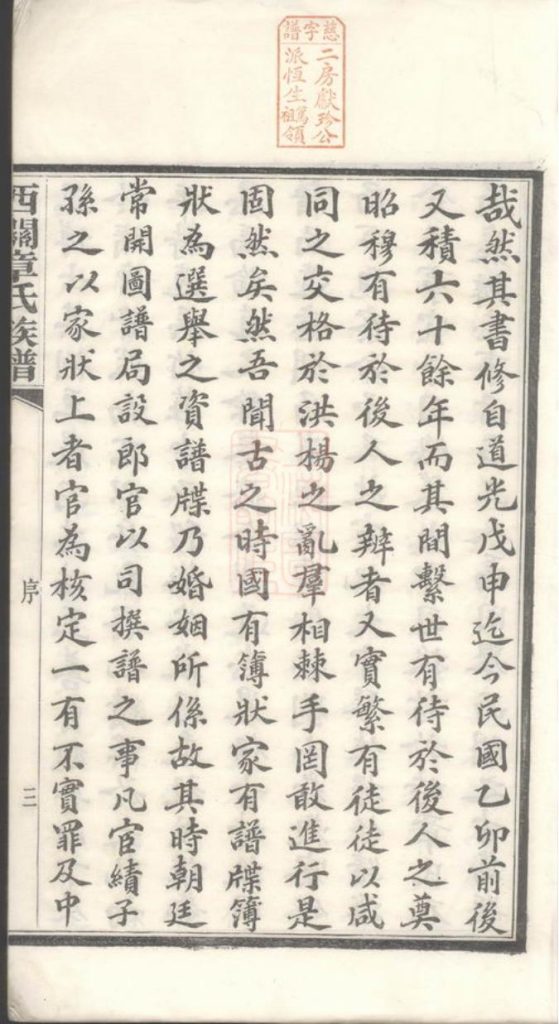 慈字譜
二房獻珍公
派恆生篤祖領
哉然其書修自道光戊申迄今民國乙卯前後
又積六十餘年而其間繫世有待於後人之奠
昭穆有待於後人之辨者又實繁有徒徒以咸
同之交格於洪楊之亂羣相棘手罔敢進行是
固然矣然吾聞古之時國有簿狀家有譜牒簿
狀為選舉之資譜牒乃婚姻所係故其時朝廷
常開圖譜局設郎官以司撰譜之事凡官績子
孫之以家狀上者官為核定一有不實罪及中
西關章氏族譜
序
三